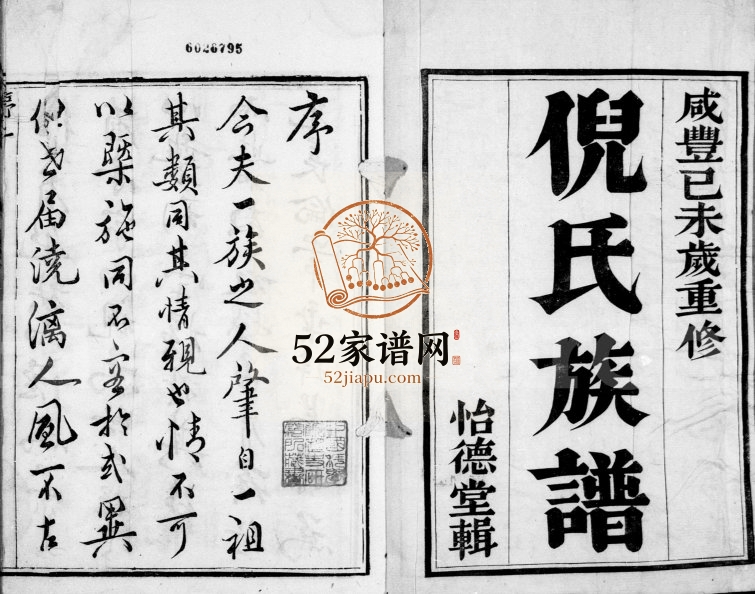 6026795
咸豐己未歲重修
倪氏族譜
怡德堂輯
序
今夫一族之人肇自一祖
其類同其情親也情不可
以槩施同不容於或異
但世届澆漓人風不古
序一
52家谱网
52jiapu.com